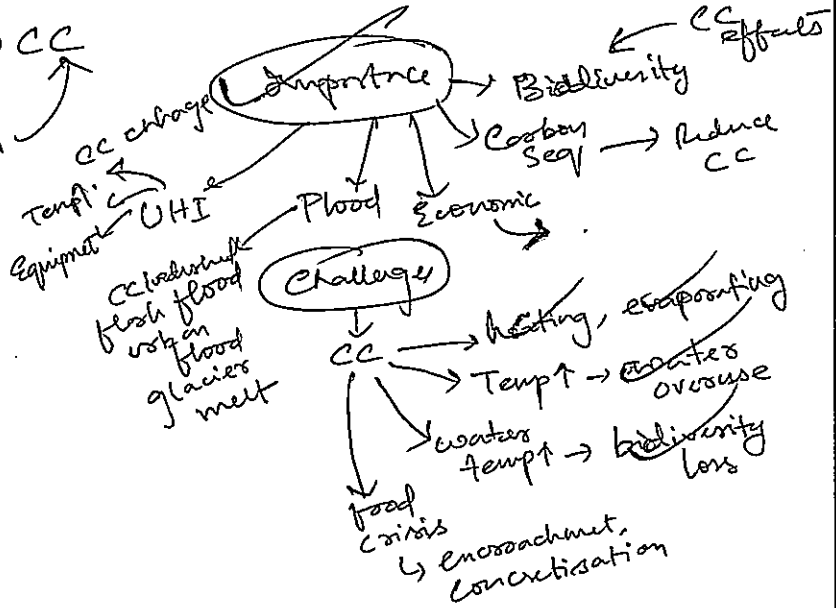 CC
CC effects
Importance
Biodiversity
Carbon
Seq
Reduce
CC
CC change
Temp↑
UHI
Equipmet
Flood
Economic
flash flood
urban
flood
glacier
melt
Challenges
CC
heating, evaporating
Temp↑ → water
overuse
water
temp↑ → bidiversity
loss
food
crisis
↳ encroachmet,
concretisation